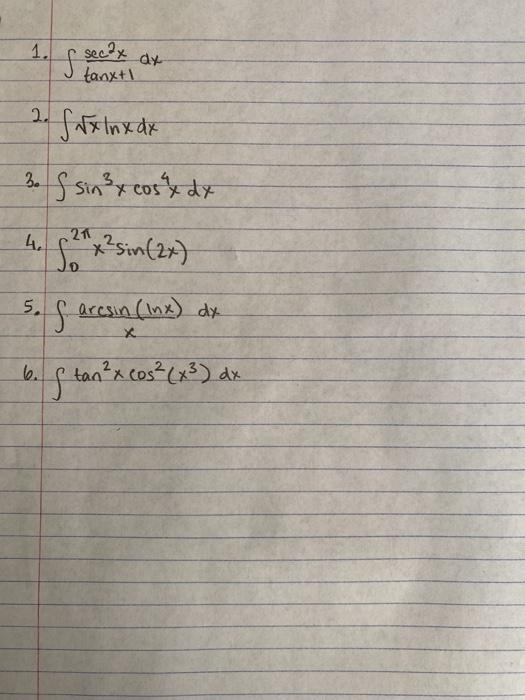 1. ∫ sec²x/(tanx+1) dx
2. ∫ √x lnx dx
3. ∫ sin³x cos⁴x dx
4. ∫₀^{2π} x² sin(2x)
5. ∫ arcsin(lnx)/x dx
6. ∫ tan²x cos²(x³) dx